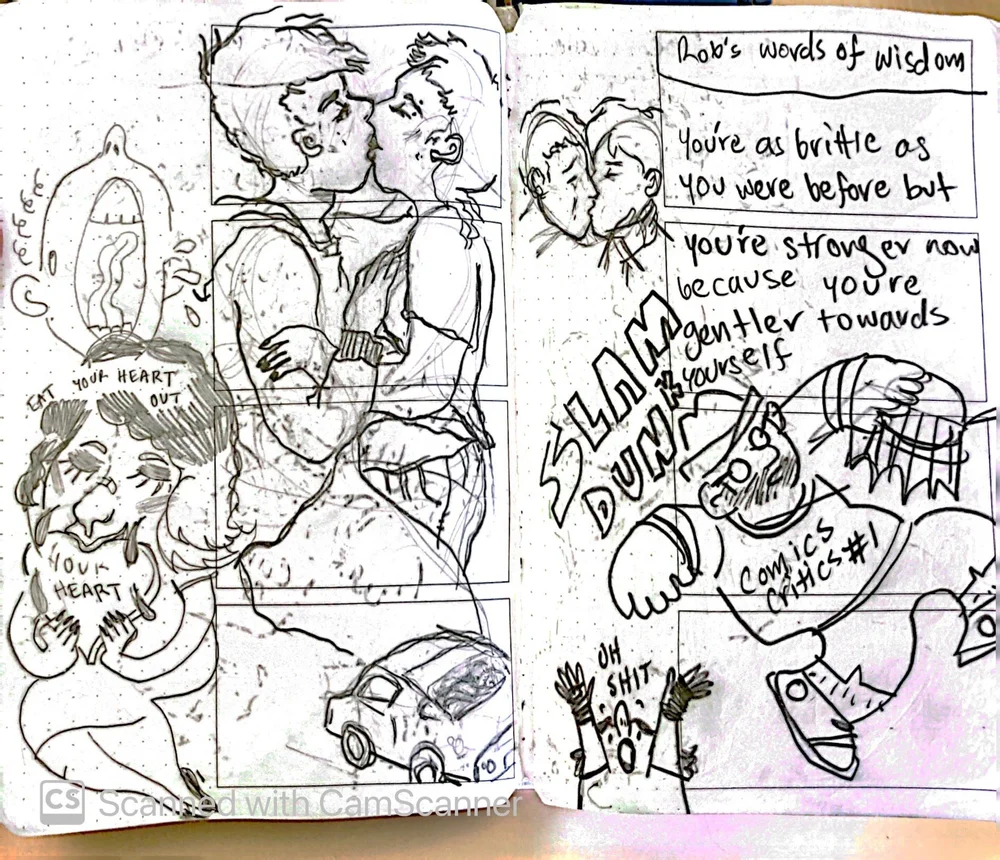 EAT YOUR HEART
OUT
YOUR
HEART
Rob's words of wisdom
You're as brittle as
you were before but
you're stronger now
because you're
gentler towards
yourself
SLAM
DUNK
COMICS
CRITICS #1
OH
SHIT
CS Scanned with CamScanner